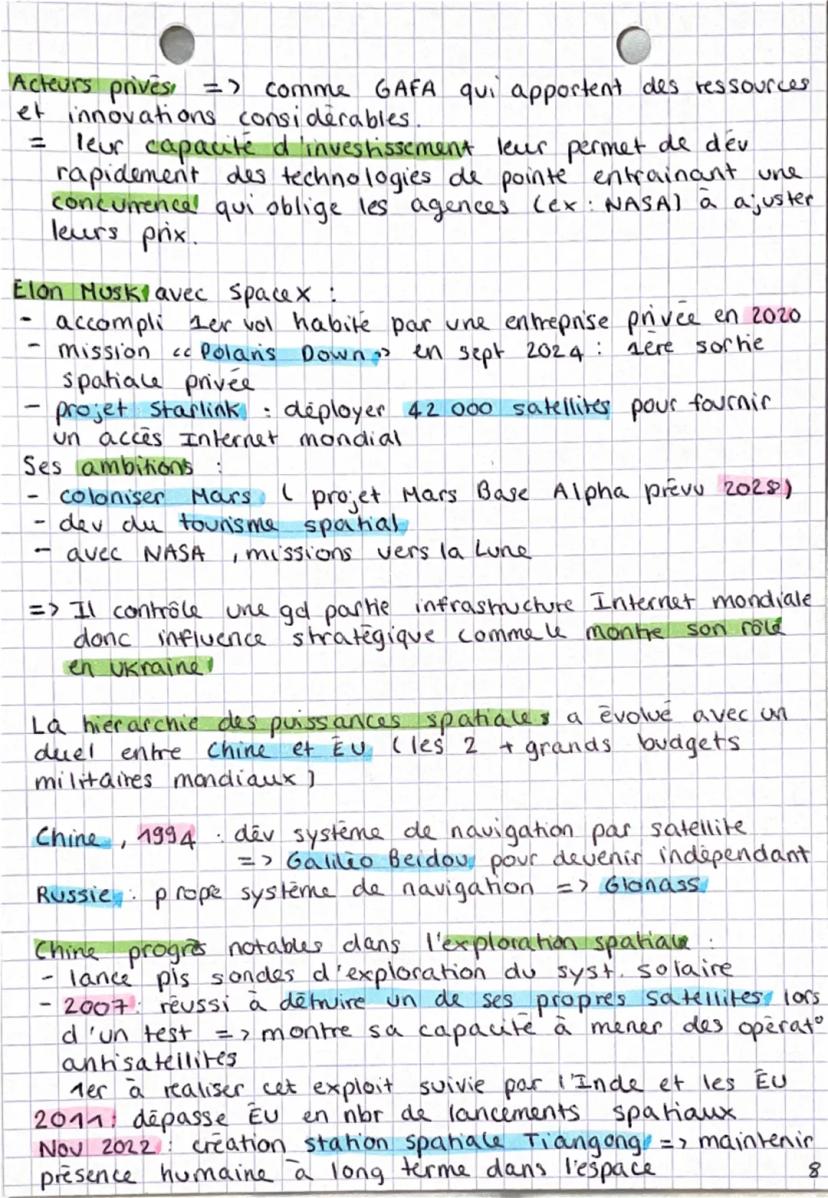 Acteurs privés => comme GAFA qui apportent des ressources
et innovations considérables.
= leur capacité d'investissement leur permet de dév
rapidement des technologies de pointe entrainant une
concurrence qui oblige les agences (ex : NASA) à ajuster
leurs prix.
Elon Musk avec SpaceX :
- accompli 1er vol habité par une entreprise privée en 2020
- mission << Polaris Down >> en sept 2024 : 1ère sortie
spatiale privée
- projet Starlink : déployer 42 000 satellites pour fournir
un accès Internet mondial
Ses ambitions :
- coloniser Mars ( projet Mars Base Alpha prévu 2028)
- dev du tourisme spatial
- avec NASA , missions vers la Lune
=> Il contrôle une gd partie infrastructure Internet mondiale
donc influence stratégique comme le montre son rôle
en Ukraine
La hiérarchie des puissances spatiales a évolué avec un
duel entre Chine et ÉU (les 2 + grands budgets
militaires mondiaux)
Chine , 1994 : dév système de navigation par satellite
=> Galiléo Beidou pour devenir indépendant
Russie : propre système de navigation => Glonass
Chine progrès notables dans l'exploration spatiale :
- lance pls sondes d'exploration du syst. solaire
- 2007 : réussi à détruire un de ses propres satellites lors
d'un test => montre sa capacité à mener des opérat°
antisatellites
1er à réaliser cet exploit suivie par l'Inde et les ÉU
2011 : dépasse ÉU en nbr de lancements spatiaux
Nov 2022 : création station spatiale Tiangong => maintenir
présence humaine à long terme dans l'espace
8